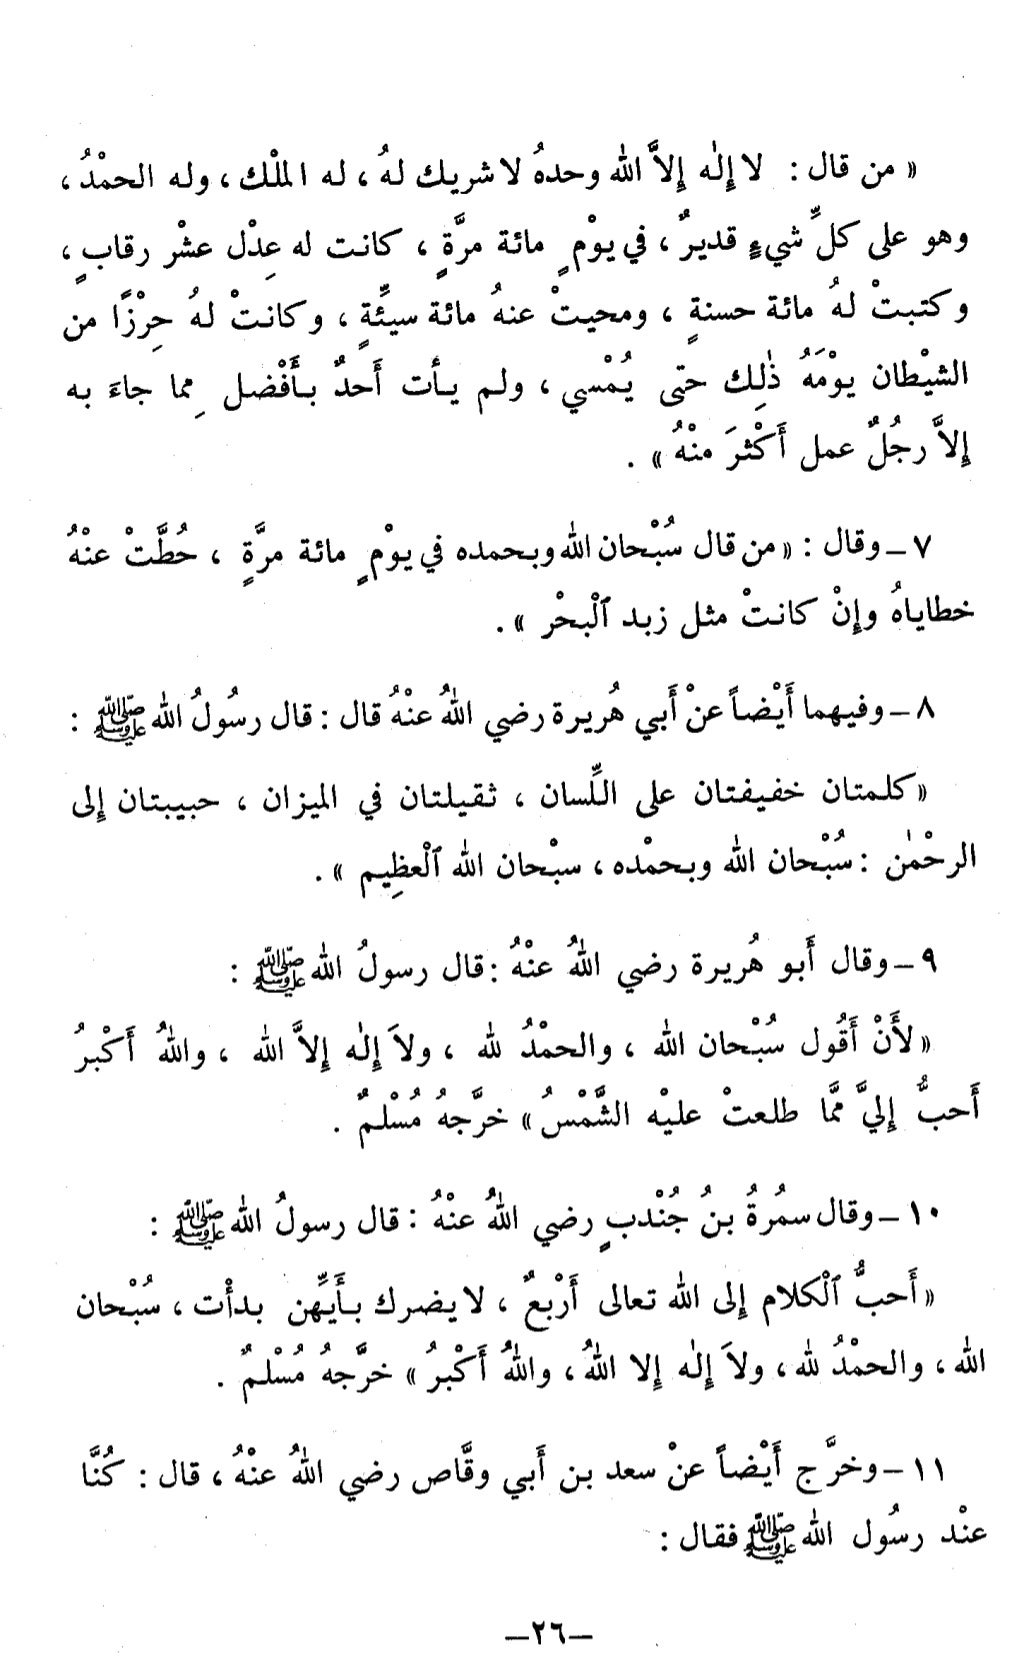 « من قال : لا إِلٰه إِلاَّ الله وحدهُ لا شريك لهُ ، له الملْك ، وله الحمْدُ ،
وهو على كلِّ شيءٍ قديرٌ ، في يوْمٍ مائة مرَّةٍ ، كانت له عِدْل عشْر رقابٍ ،
وكتبتْ لهُ مائة حسنةٍ ، ومحيتْ عنهُ مائة سيِّئةٍ ، وكانتْ لهُ حِرْزًا من
الشيْطان يوْمَهُ ذٰلِك حتى يُمْسي ، ولم يأت أَحدٌ بأَفْضل مِما جاءَ به
إِلاَّ رجُلٌ عمل أَكْثرَ منْهُ » .
٧ ــ وقال : « من قال سُبْحان الله وبحمده في يوْمٍ مائة مرَّةٍ ، حُطَّتْ عنْهُ
خطاياهُ وإِنْ كانتْ مثل زبد ٱلْبحْر » .
٨ ــ وفيهما أَيْضاً عنْ أَبي هُريرة رضي اللهُ عنْهُ قال : قال رسُولُ الله ﷺ :
« كلمتان خفيفتان على اللِّسان ، ثقيلتان في الميزان ، حبيبتان إِلى
الرحْمٰن : سُبْحان الله وبحمْده ، سبْحان الله ٱلْعظِيم » .
٩ ــ وقال أَبو هُريرة رضي اللهُ عنْهُ : قال رسولُ الله ﷺ :
« لأَنْ أَقُول سُبْحان الله ، والحمْدُ لله ، ولاَ إِلٰه إِلاَّ الله ، واللهُ أَكْبرُ
أَحبُّ إِليَّ ممَّا طلعتْ عليْه الشَّمْسُ » خرَّجهُ مُسْلمٌ .
١٠ ــ وقال سمُرةُ بنُ جُنْدبٍ رضي اللهُ عنْهُ : قال رسولُ الله ﷺ :
« أَحبُّ ٱلْكلام إِلى الله تعالى أَرْبعٌ ، لا يضرك بأَيِّهن بدأْت ، سُبْحان
الله ، والحمْدُ لله ، ولاَ إِلٰه إِلا اللهُ ، واللهُ أَكْبرُ » خرَّجهُ مُسْلمٌ .
١١ ــ وخرَّج أَيْضاً عنْ سعد بن أَبي وقَّاص رضي اللهُ عنْهُ ، قال : كُنَّا
عنْد رسُول الله ﷺ فقال :
ــ ٢٦ ــ